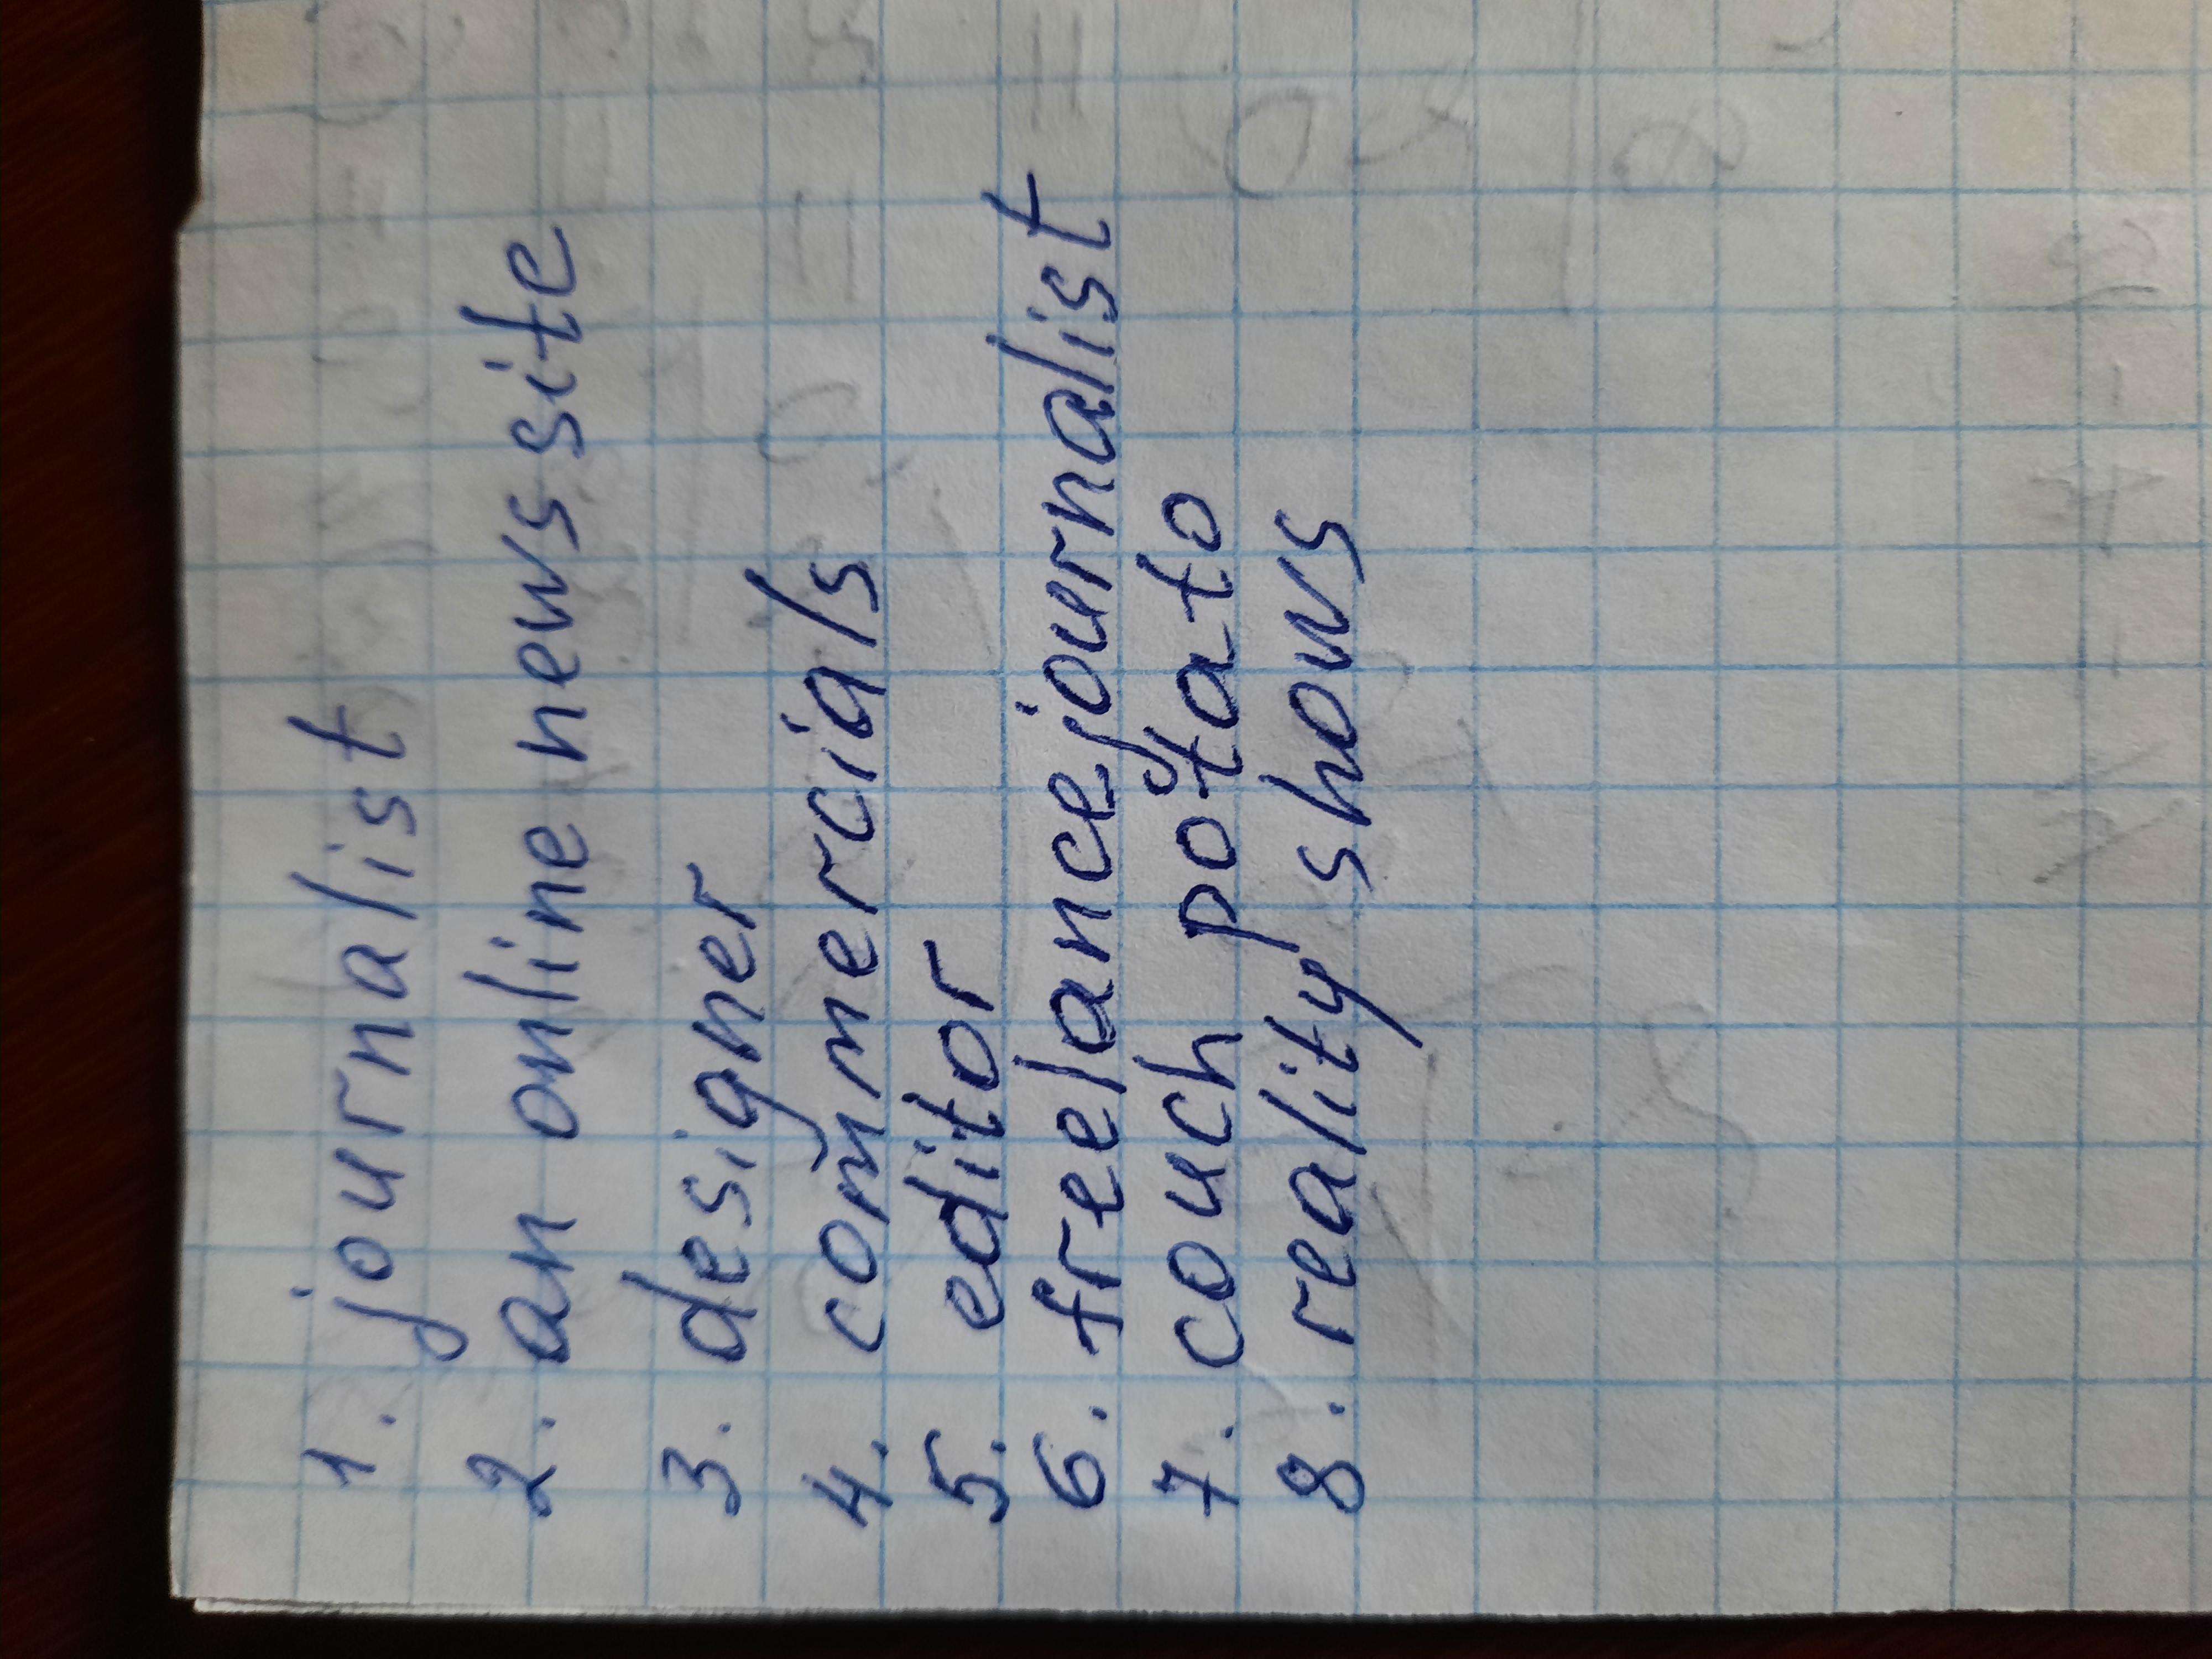 1. journalist
2. an online news site
3. designer
4. commercials
5. editor
6. freelance journalist
7. couch potato
8. reality shows